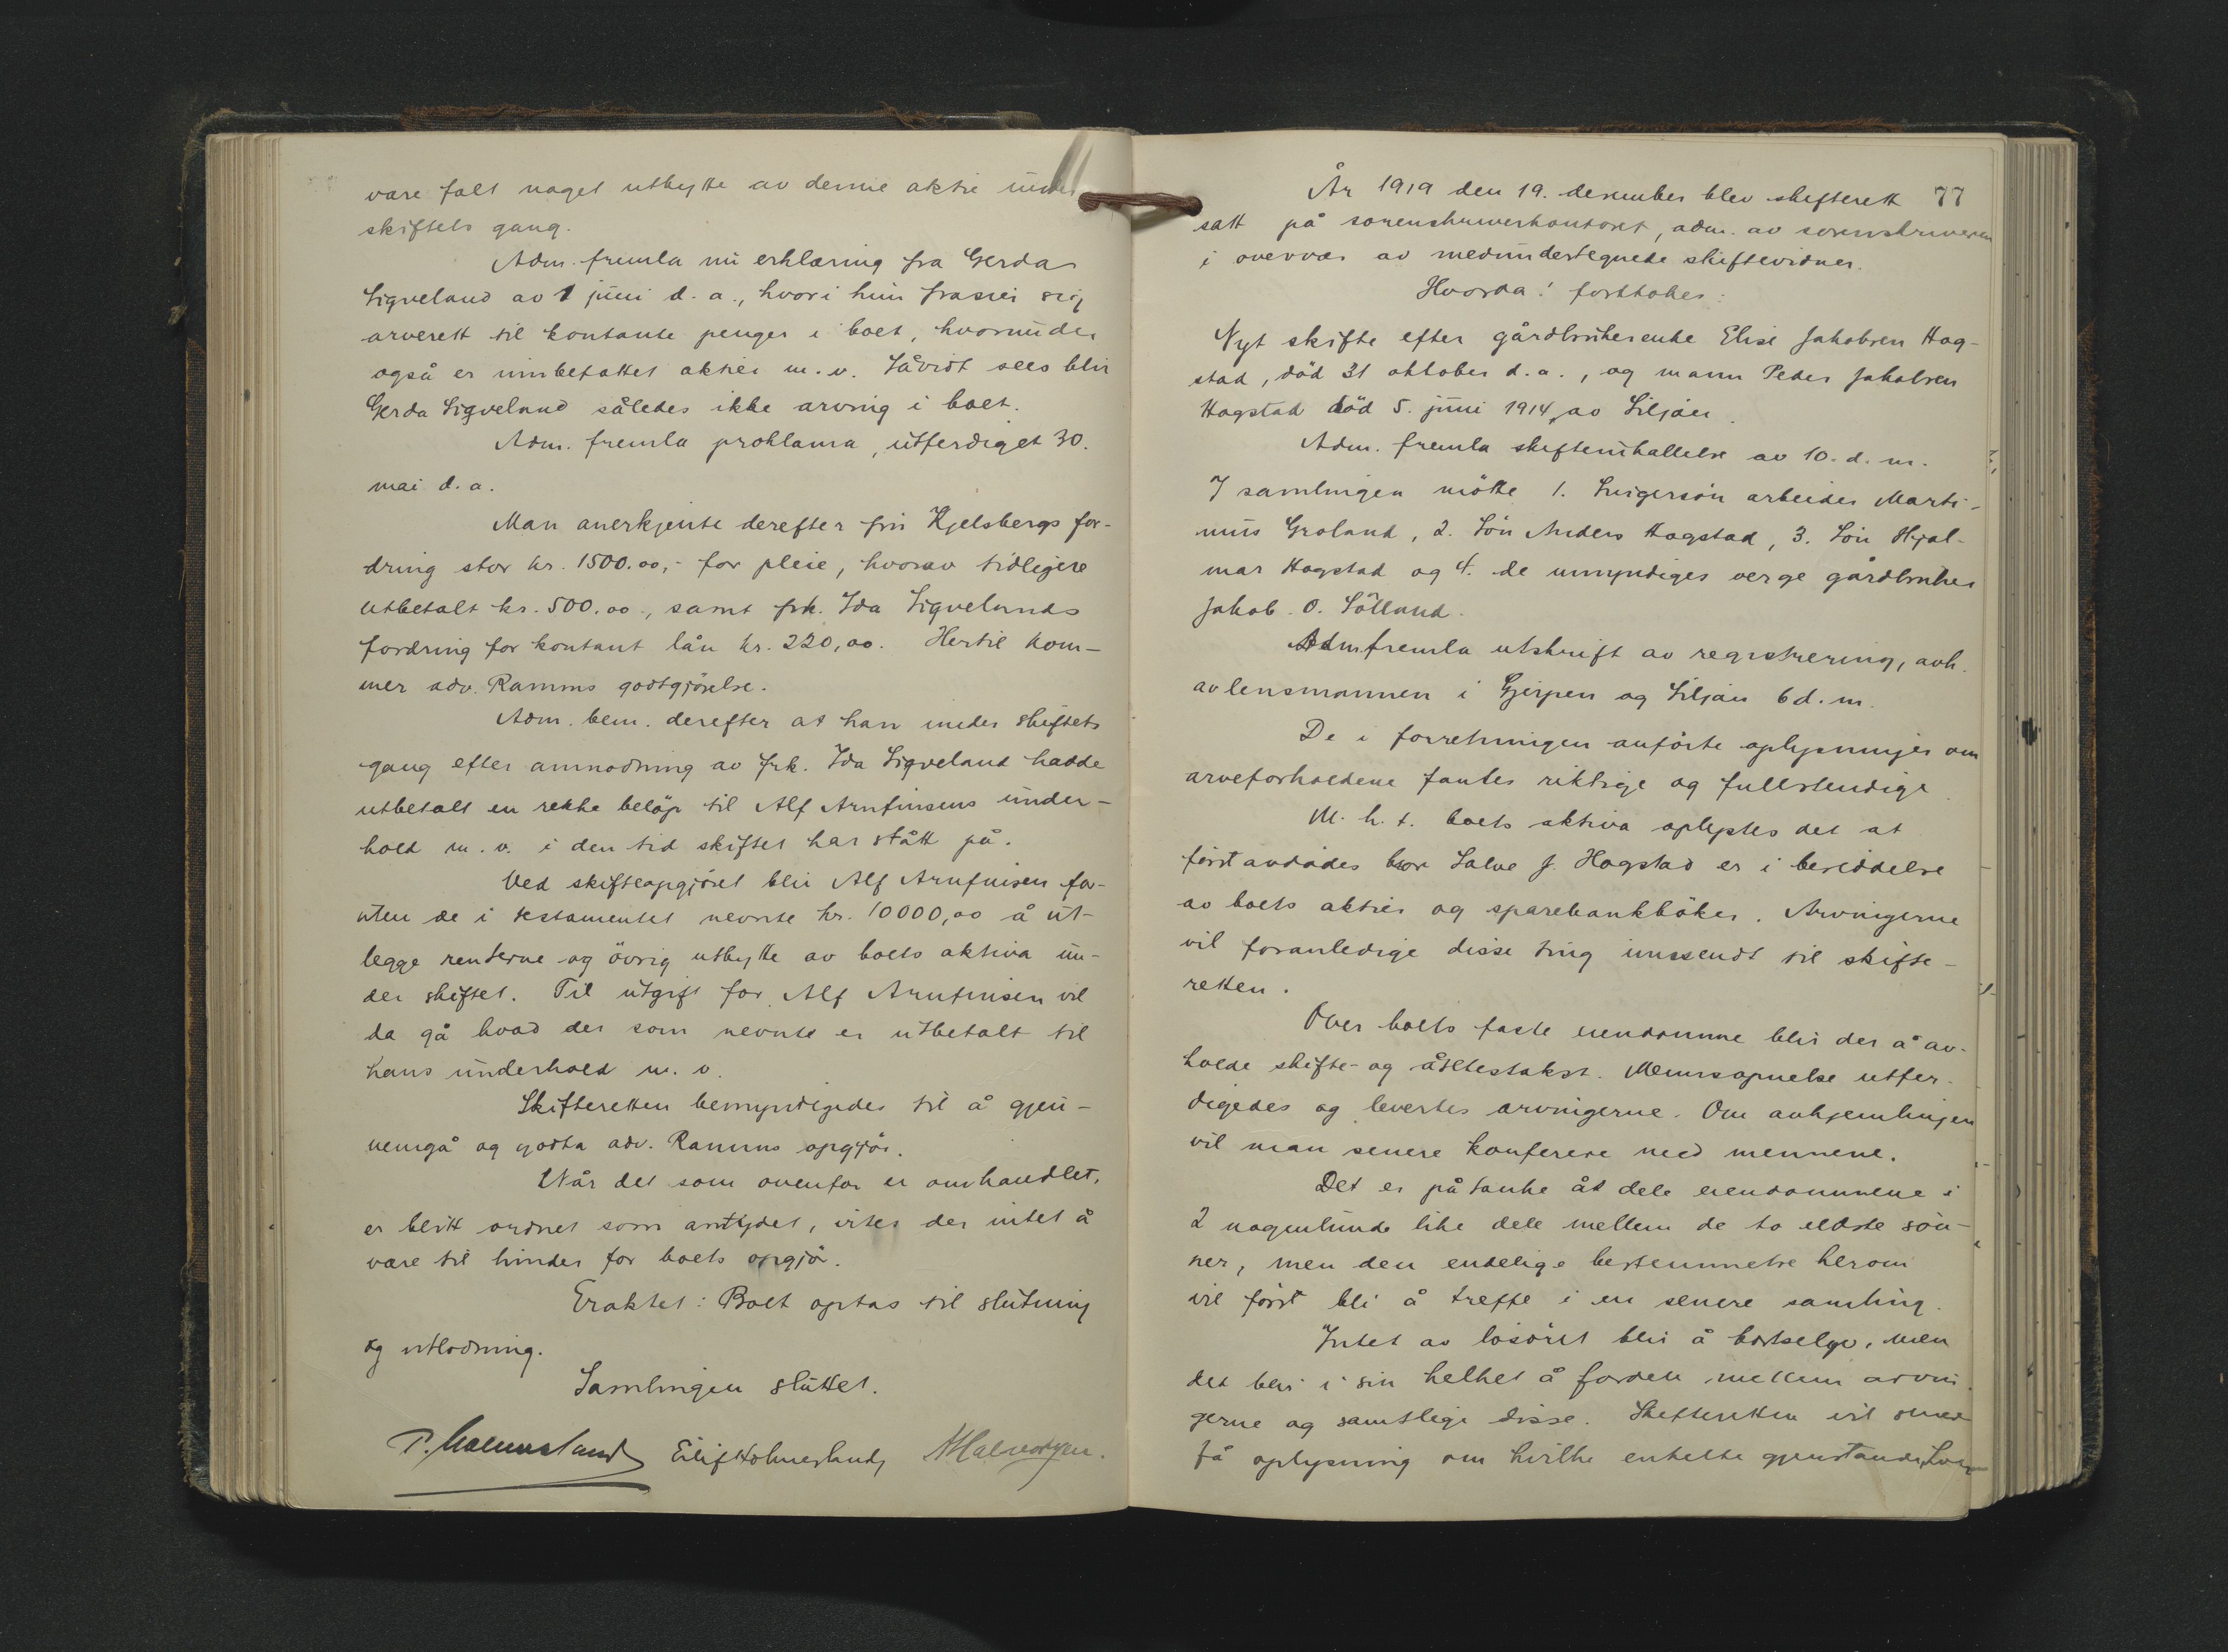 være falt noget utbytte av denne aktie under
skiftets gang.
Adm. fremla nu erklæring fra Gerda
Sigveland av 1 juni d. a., hvori hun frasier sig
arverett til kontante penger i boet, hvorunder
også er innbefattet aktier m. v. Såvidt sees blir
Gerda Sigveland således ikke arving i boet.
Adm. fremla proklama, utferdiget 30.
mai d. a.
Man anerkjente derefter fru Kjelsbergs for-
dring stor kr. 1500.oo,- for pleie, hvorav tidligere
utbetalt kr. 500.oo-, samt frk. Ida Sigvelands
fordring for kontant lån kr. 220,oo. Hertil kom-
mer adv. Ramms godtgjörelse.
Adm. bem. derefter at han under skiftets
gang efter anmodning av frk. Ida Sigveland hadde
utbetalt en rekke belöp til Alf Arnfinsens under-
hold m. v. i den tid skiftet har stått på.
Ved skifteopgjöret blir Alf Arnfinsen for-
uten de i testamentet nevnte kr. 10000,oo å ut-
legge renterne og övrig utbytte av boets aktiva un-
der skiftet. Til utgift for Alf Arnfinsen vil
da gå hvad der som nevnte er utbetalt til
hans underhold m. v.
Skifteretten bemyndigedes til å gjen-
nemgå og godta adv. Ramms opgjör.
Når det som ovenfor er omhandlet,
er blitt ordnet som antydet, vites der intet å
være til hinder for boets opgjör.
Eraktet: Boet optas til slutning
og utlodning.
Samlingen sluttet.
Eilif Holmesland, A Halvorsen.
77
År 1919 den 19. desember blev skifterett
satt på sorenskriverkontoret, adm. av sorenskriveren
i overvær av medundertegnede skiftevidner.
Hvorda! forttokes:
Nyt skifte efter gårdbrukerenke Elise Jakobsen Hog-
stad, död 31 oktober d. a., og mann Peder Jakobsen
Hogstad död 5. juni 1914, av Siljan.
Adm. fremla skifteinkallelse av 10. d. m.
I samlingen mötte 1. Svigersön arbeider Marti-
nus Groland, 2. Sön Anders Hogstad, 3. Sön Hjal-
mar Hogstad og 4. de umyndiges verge gårdbruker
Jakob O. Sölland.
Adm. fremla utskrift av registrering, avh.
av lensmannen i Gjerpen og Siljan 6 d. m.
De i forretningen anförte oplysninger om
arveforholdene fantes riktige og fullstendige.
M. h. t. boets aktiva oplystes det at
förstavdödes bror Salve J. Hogstad er i besiddelse
av boets aktier og sparebankböker. Arvingerne
vil foranledige disse ting innsendt til skifte-
retten.
Over boets faste eiendomme blir der å av-
holde skifte- og åsetestakst. Mennsopnelse utfer-
digedes og levertes arvingerne. Om anhjemlingen
vil man senere konferere med mennene.
Det er påtænke åt dele eiendommene i
2 nogenlunde like dele mellem de to eldste sön-
ner, men den endelige bestemmelse herom
vil först bli å treffe i en senere samling.
Intet av lösöret blir å bortselge, men
det blir i sin helhet å fordele mellem arvin-
gerne og samtlige disse. Skifteretten vil senere
få oplysning om hvilke enkelte gjenstande,